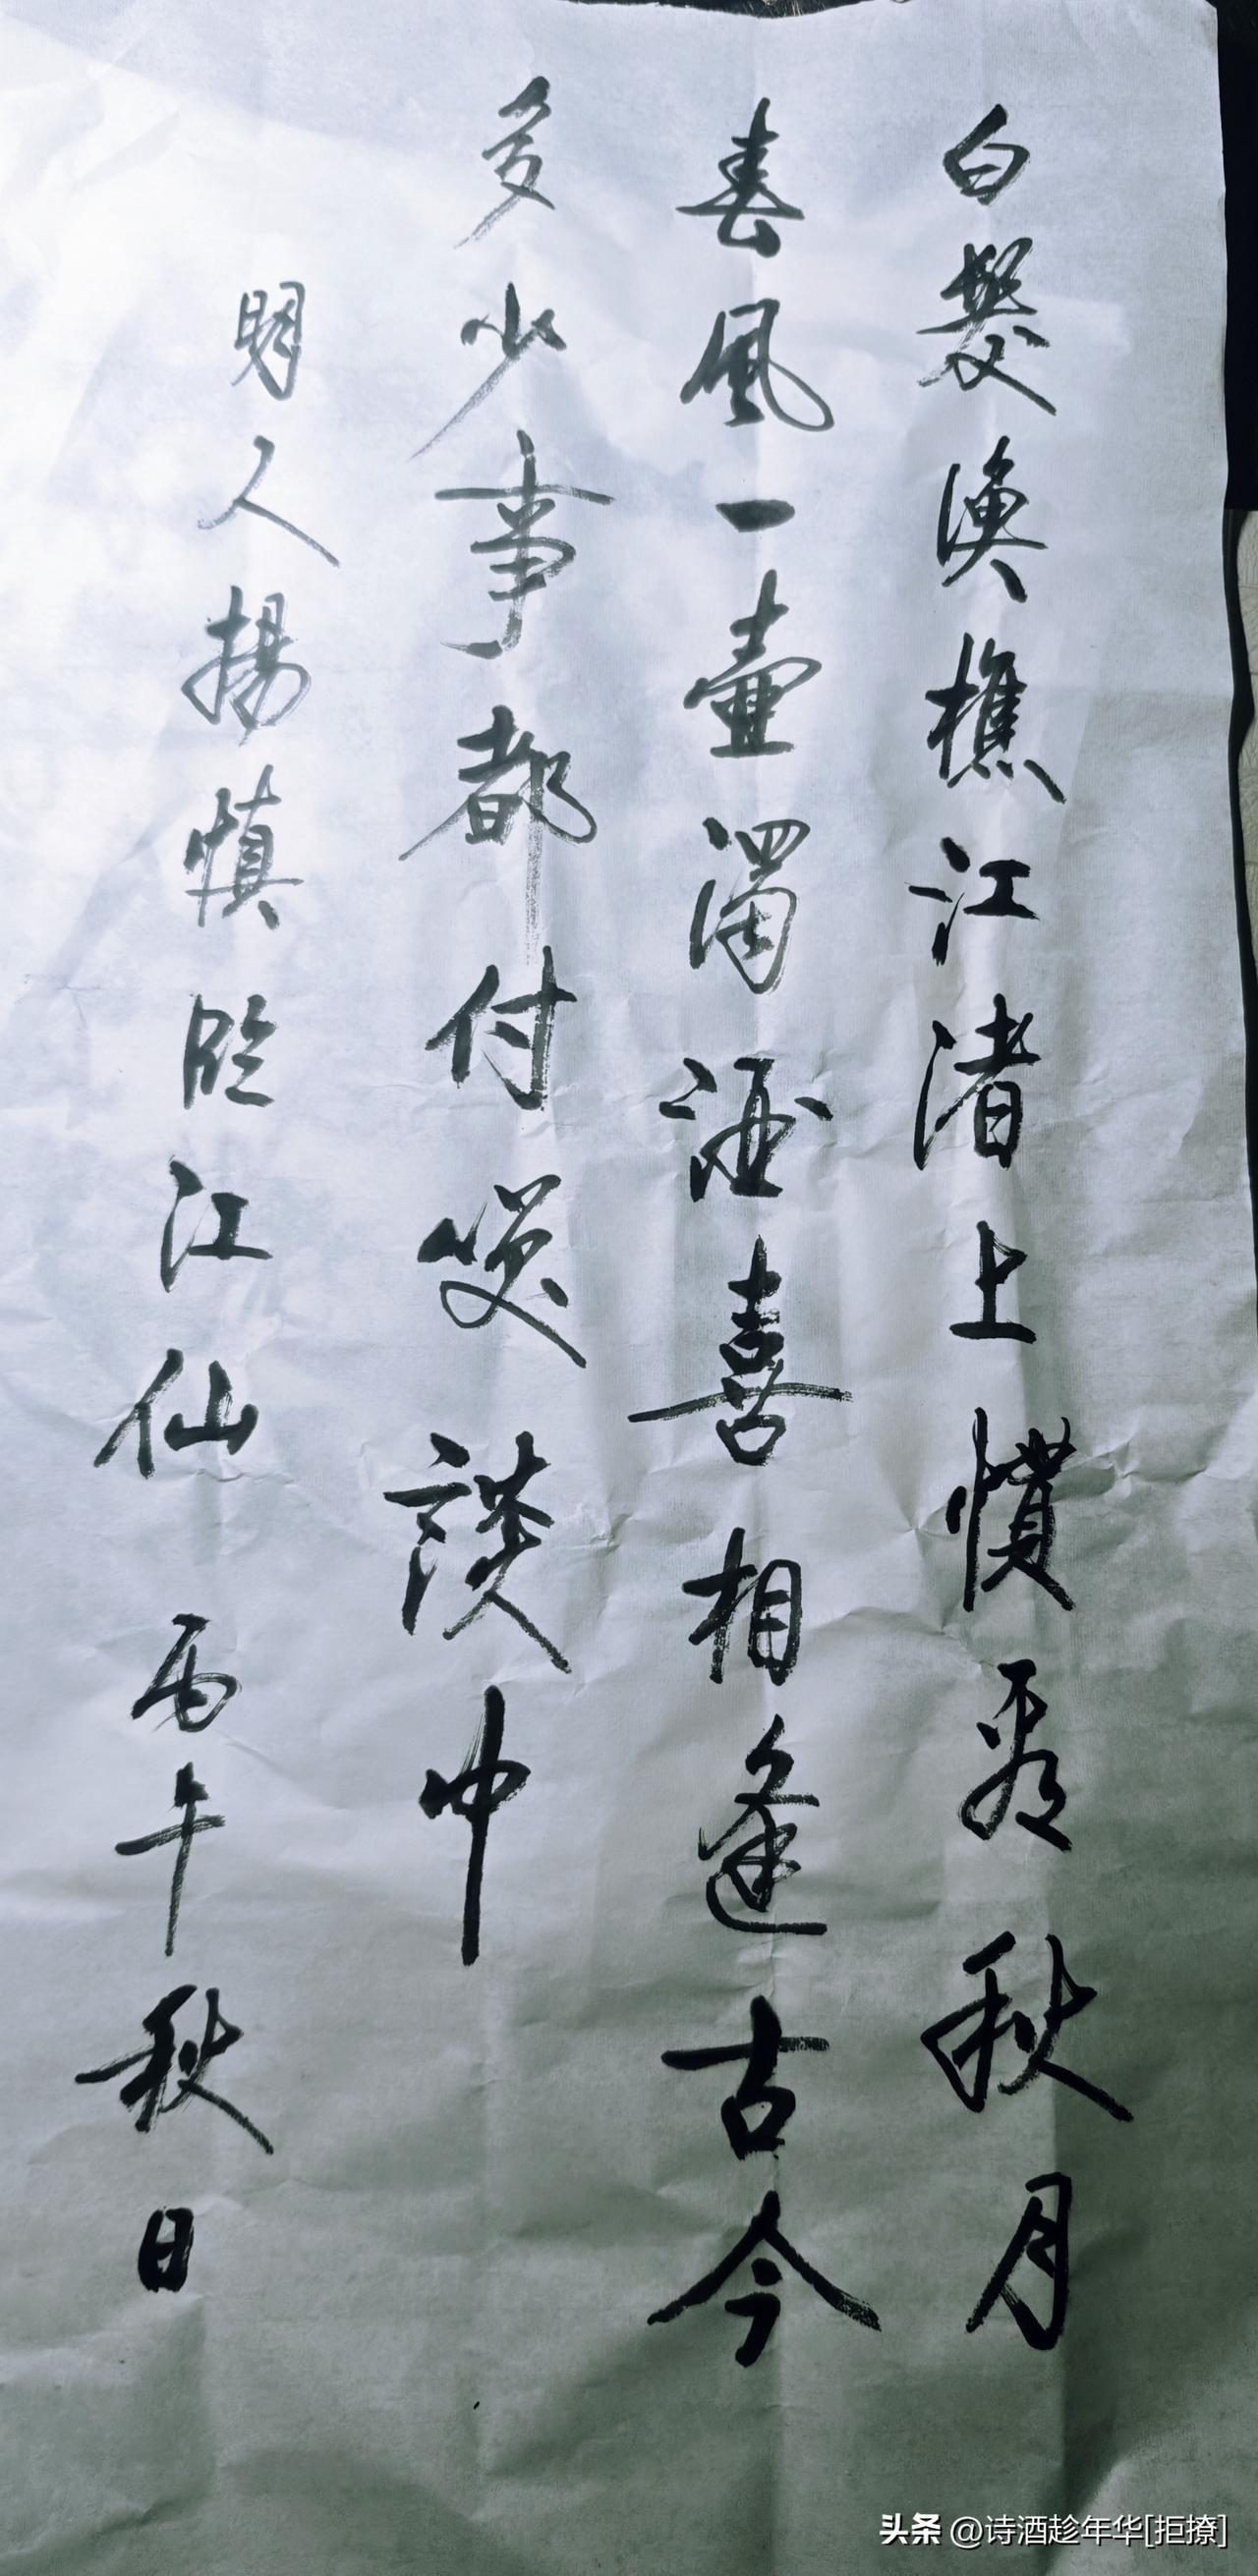 白髮漁樵江渚上慣看秋月
春風一壺濁酒喜相逢古今
多少事都付笑談中
明人揚慎臨江仙 丙午秋日
头条 @诗酒趁年华[拒撩]